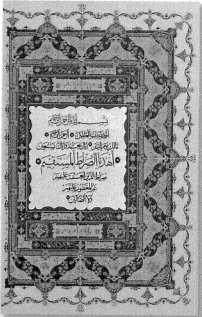 بسم الله الرحمن الرحيم
الحمد لله رب العالمين الرحمن الرحيم
مالك يوم الدين إياك نعبد وإياك نستعين
اهدنا الصراط المستقيم
صراط الذين أنعمت عليهم
غير المغضوب عليهم
ولا الضالين